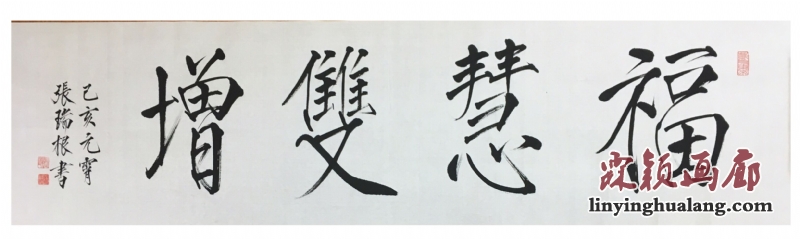 福慧雙增
己亥元宵
張瑞根書
琛颖画廊
linyinghualang.com